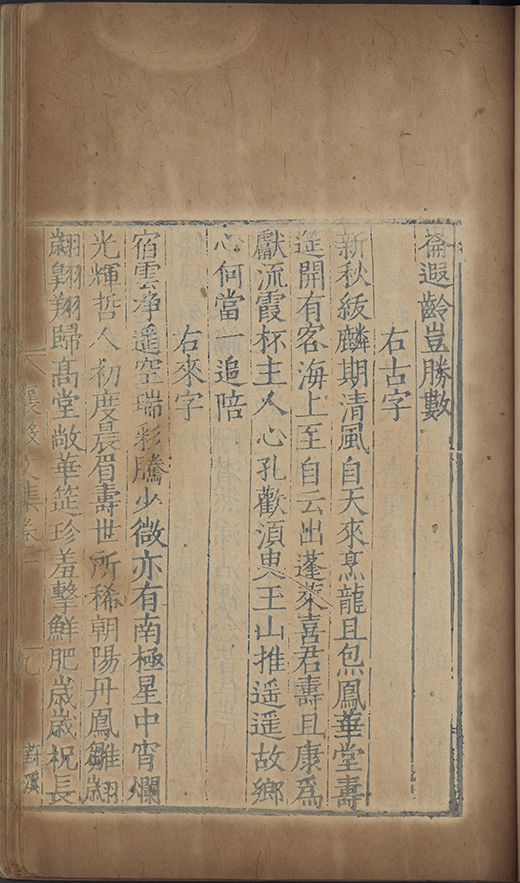 裔遐齡豈勝數
右古字
新秋紱麟期清風自天來烹龍且炰鳳華堂壽
筵開有客海上至自云出蓬萊喜君壽且康爲
獻流霞杯主人心孔歡須臾玉山推遥遥故鄉
心何當一追陪
右來字
宿雲净遥空瑞彩騰少微亦有南極星中宵爛
光輝哲人初度晨眉壽世所稀朝陽丹鳳雛翽
翽翺翔歸髙堂敞華筵珍羞擊鮮肥歲歲祝長
襄毅文集卷一 九